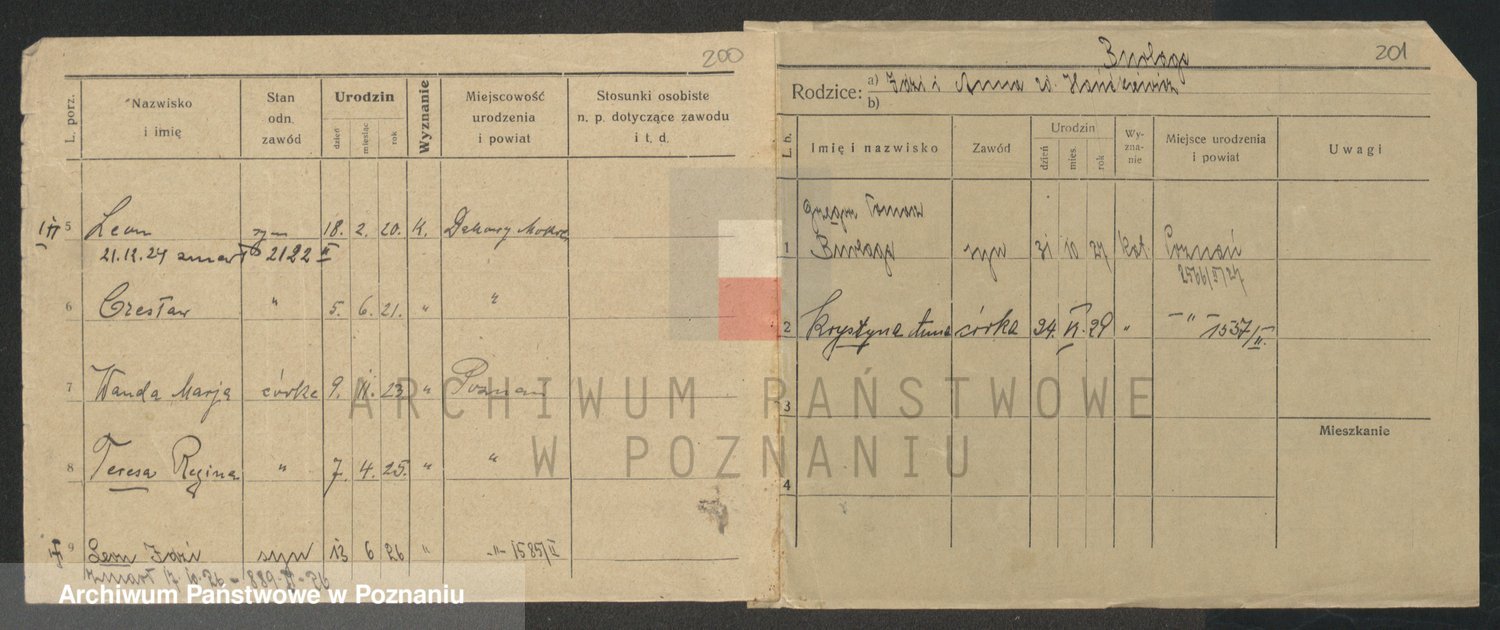 200
L. porz.
Nazwisko i imię
Stan odn. zawód
Urodzin
dzień
miesiąc
rok
Wyznanie
Miejscowość urodzenia i powiat
Stosunki osobiste n. p. dotyczące zawodu i t. d.
5 Leon syn 18. 2. 20. K. Dakowy Mokre
21.12.24 zmarł 2122 II
6 Czesław " 5. 6. 21. " "
7 Wanda Marja córka 9. 11. 23. " Poznań
8 Teresa Regina " 7. 4. 25. " "
9 Leon Józef syn 13 6 26 " -"- 1585/II
zmarł 17 26 - 889 - 26
201
Rodzice: a) Anna
b)
L. b.
Imię i nazwisko
Zawód
Urodzin
dzień
mies.
rok
Wyznanie
Miejsce urodzenia i powiat
Uwagi
1 syn 31 10 27 kat. Poznań
2566/II/27
2 Krystyna Anna córka 24. VI. 29 " -"- 1537/II.
3
Mieszkanie
4
ARCHIWUM PAŃSTWOWE
W POZNANIU
Archiwum Państwowe w Poznaniu